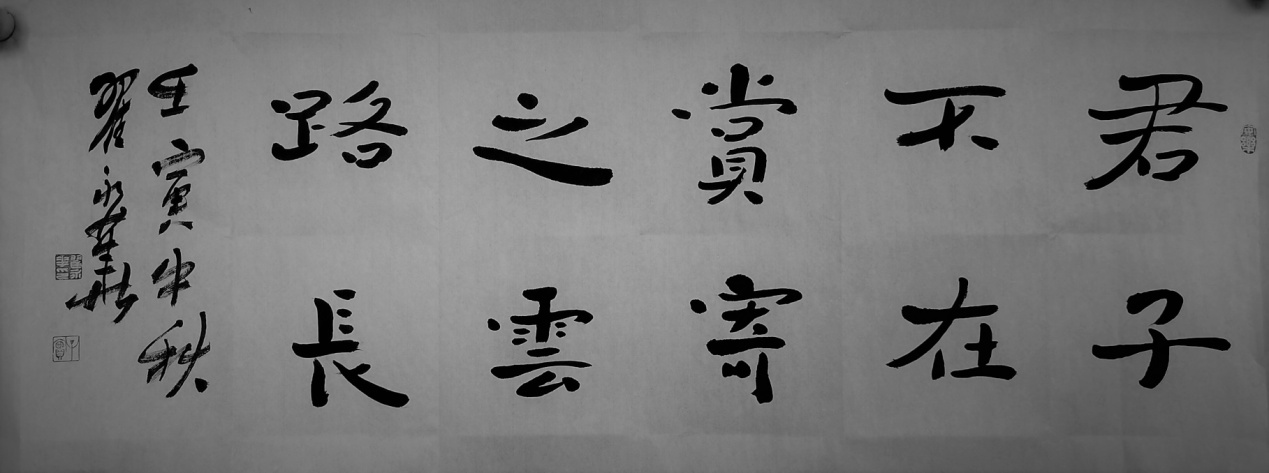 君子
不在
賞寄
之雲
路長
壬寅中秋
翟永華